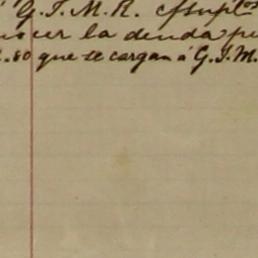 G. I. M. R.
cer la deuda
.80 que se cargan á G. I. M.